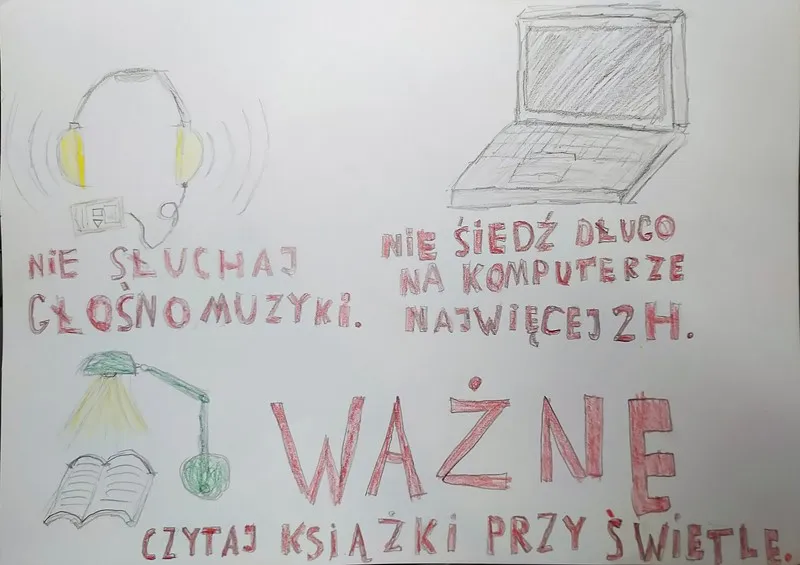 NIE SŁUCHAJ
GŁOŚNO MUZYKI.
NIE ŚIEDŹ DŁUGO
NA KOMPUTERZE
NAJWIĘCEJ 2 H.
WAŻNĘ
CZYTAJ KSIĄŻKI PRZY ŚWIETLE.